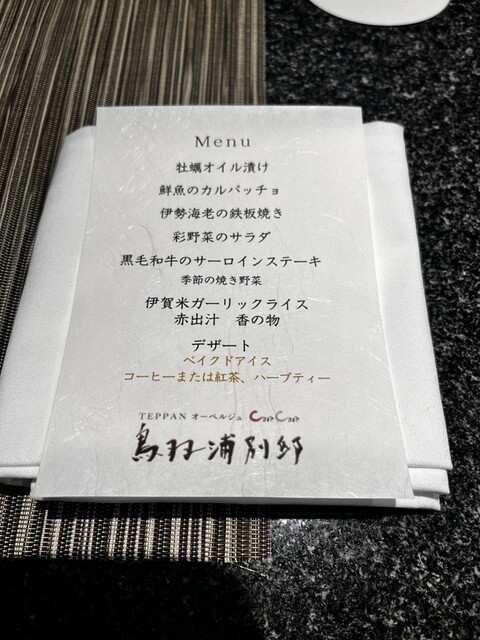 Menu
牡蠣オイル漬け
鮮魚のカルパッチョ
伊勢海老の鉄板焼き
彩野菜のサラダ
黒毛和牛のサーロインステーキ
季節の焼き野菜
伊賀米ガーリックライス
赤出汁　香の物
デザート
ベイクドアイス
コーヒーまたは紅茶、ハーブティー
TEPPAN オーベルジュ CanCan
鳥羽浦別邸